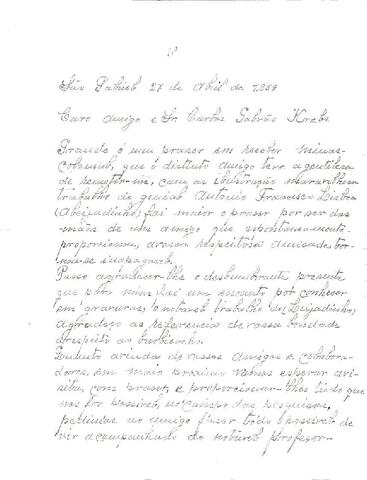 1º
São Gabriel 27 de Abril de 1.959
Caro Amigo e Sr. Carlos Galvão Krebs
Grande é o meu praser em receber
que o distinto amigo teve a gentileza
de remeter-me, com as ilustrações
trabalho do genial Antonio Francisco Lisbôa
(Aleijadinho), foi maior o praser por ser das
mãos de um amigo que espontaneamente
proporcionou, a nossa respeitosa amisade tor-
nou-se inapagavel.
Passo agradecer-lhe o deslumbrante presente
que para mim foi um encanto por conhecer
em gravuras, o notavel trabalho do Aleijadinho,
agradeço as referencias de vossa bondade
respeito ao
de vossos amigos e colabora-
dores, em maio proximo vamos esperar a vi-
sita, com praser, e proporcionar-lhes tudo que
nos for possivel, no campo das pesquisas,
pedimos ao amigo fazer todo o possivel de
vir acompanhado do notavel professor-